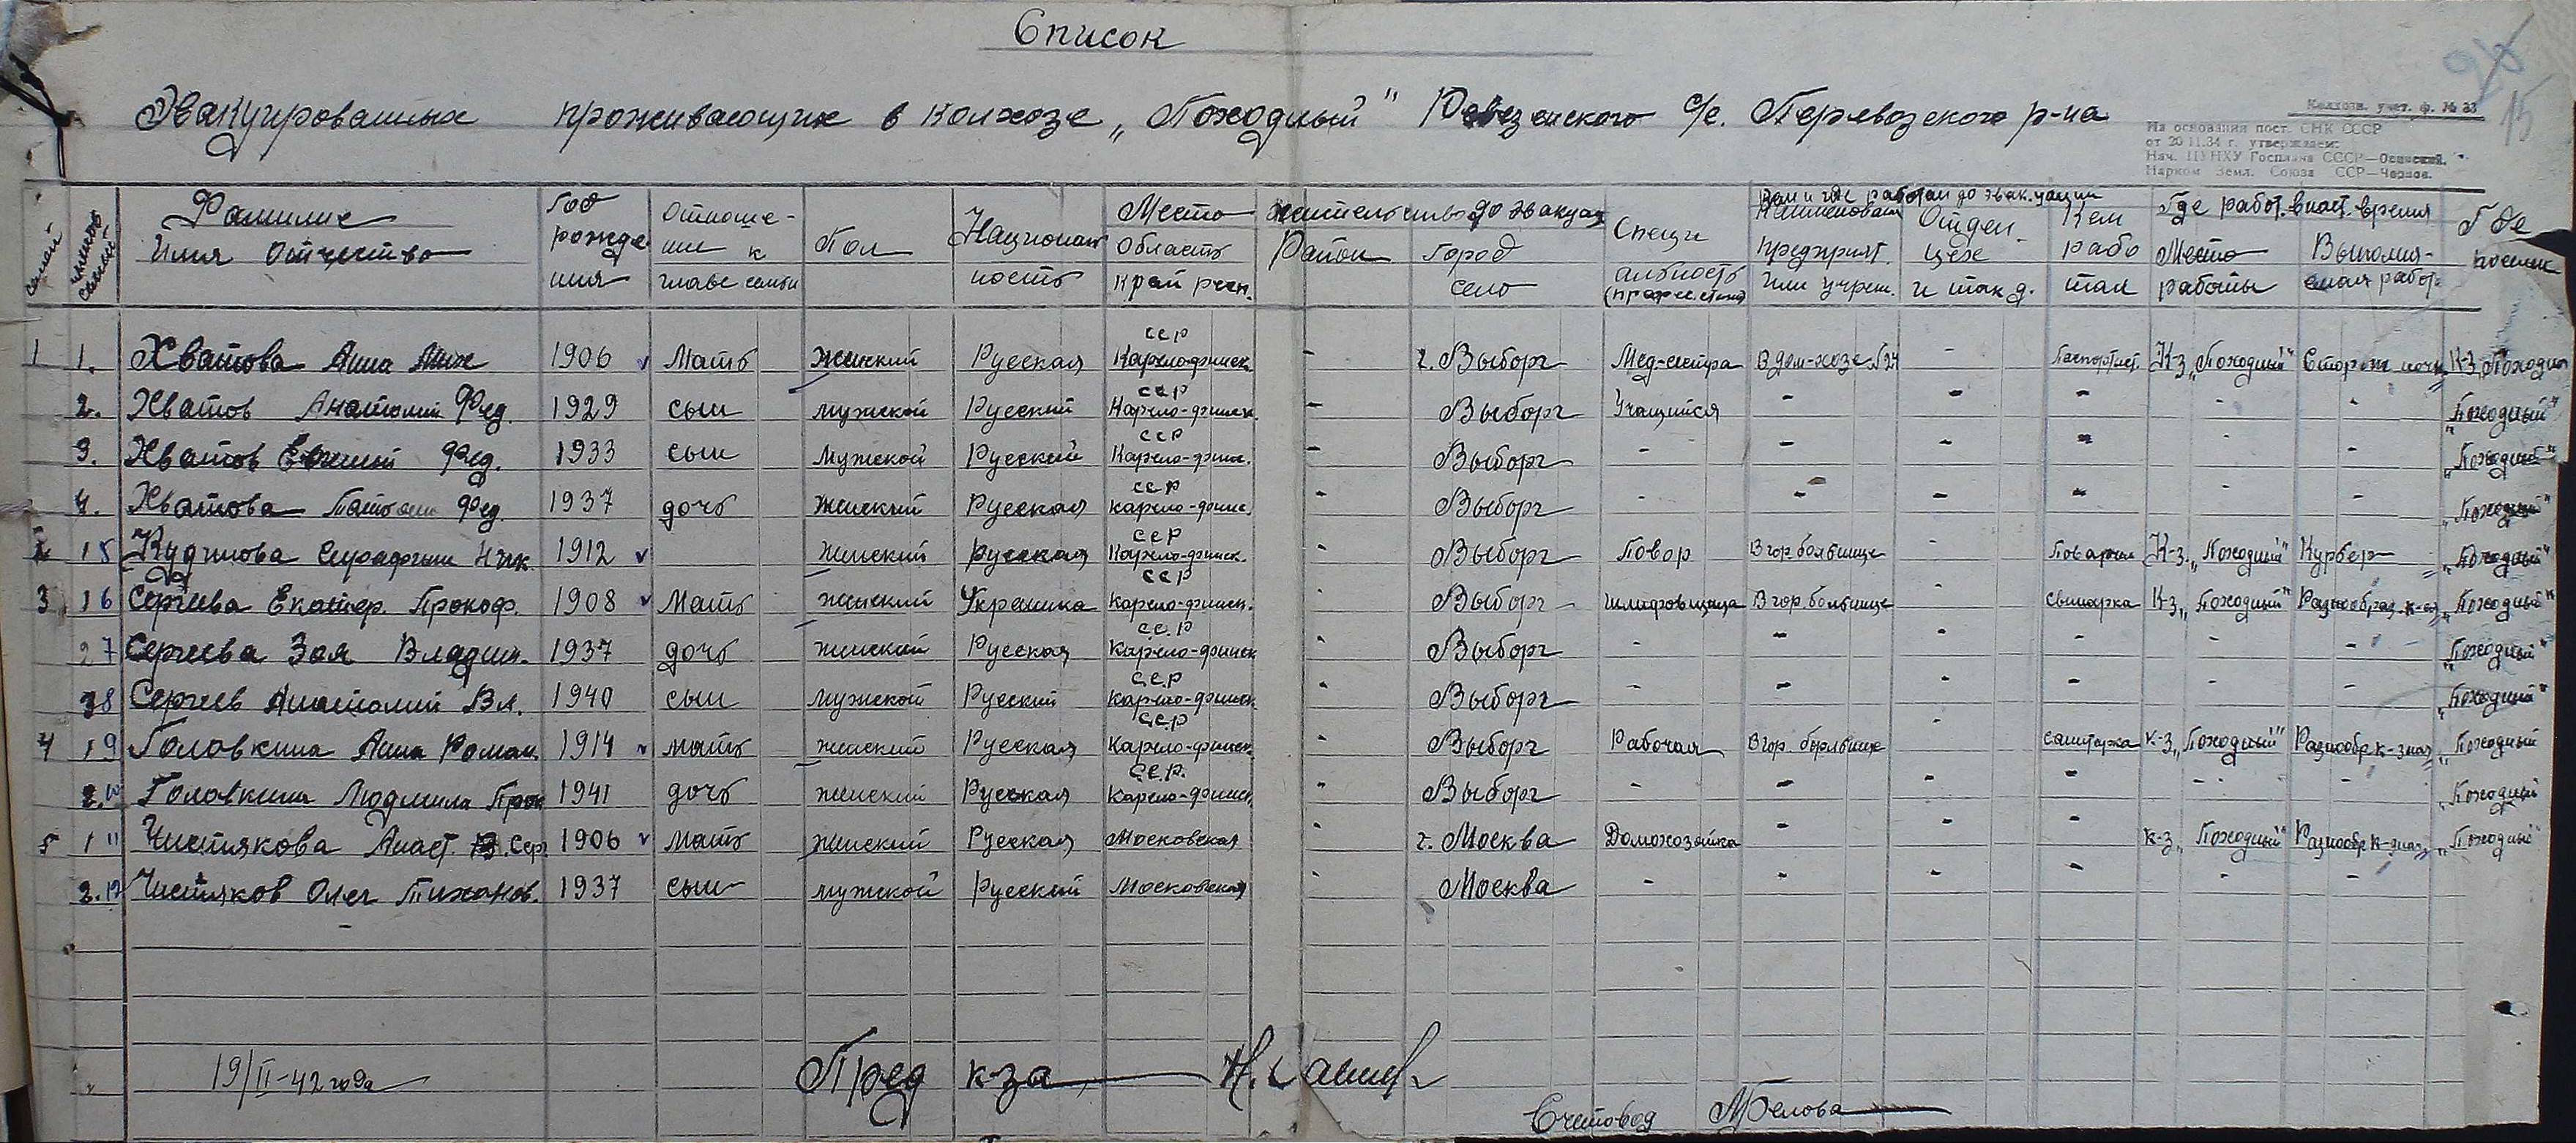 Список
Эвакуированных проживающих в колхозе „Походный" Ревезенского с/с. Перевозского р-на
Колхозн. учет. ф. № 33
15
На основании пост. СНК СССР
от 20 11.34 г. утверждаем:
Нач. ЦУНХУ Госплана СССР—Осинский.
Нарком Земл. Союза ССР—Чернов.
семей членов семьи Фамилие Имя Отчество Год рождения Отношение к главе семьи Пол Национальность Место жительство до эвакуац Область Край респ. Район Город село Специальность (професcия) Кем и где работал до эвакуации Наименован предприят. или учреж. Отдел. цех и так д. Кем работал Где работ. в наст. время Место работы Выполняемая работ. Где
1 1. Хватова Анна Мих 1906 v Мать женский Русская Карело-финск. ССР - г. Выборг Мед-сестра В дом-хозе №24 - Паспортист. К-з „Походный" Сторож ночн К-з „Походн
2. Хватов Анатолий Фед. 1929 сын мужской Русский Карело-финск. ССР - Выборг Учащийся - - - - - „Походный"
3. Хватов Евгений Фед. 1933 сын мужской Русский Карело-финс. ССР - Выборг - - - - - - „Походный"
4. Хватова Фед. 1937 дочь женский Русская Карело-финс. ССР - Выборг - - - - - - „Походный"
2 1 5 Кудимова Серафима Ник. 1912 v женский Русская Карело-финск. ССР - Выборг Повор В гор. больнице - К-з. „Походный" Курьер „Походный"
3 1 6 Сергеева Екатер. Прокоф. 1908 v Мать женский Украинка Карело-финск. ССР - Выборг Шлифовщица В гор. больнице - К-з „Походный" Разнообраз. „Походный"
2 7 Сергеева Зоя Владим. 1937 дочь женский Русская Карело-финск ССР - Выборг - - - - - - „Походный"
3 8 Сергеев Анатолий Вл. 1940 сын мужской Русский Карело-финск ССР - Выборг - - - - - - „Походный"
4 1 9 Головкина Анна Роман. 1914 v мать женский Русская Карело-финск. ССР - Выборг Рабочая В гор. больнице - санитарка К-з „Походный" Разнообр „Походный
2. 10 Головкина Людмила 1941 дочь женский Русская Карело-финск. ССР. - Выборг - - - - - - „Походный
5 1 11 Чистякова Анаст. Сер. 1906 v мать женский Русская Московская - г. Москва Домохозяйка - - - к-з „Походный" Разнообр „Походный"
2. 12 Чистяков Олег Тихонов. 1937 сын мужской Русский Московская - Москва - - - - - -
19/II-42 года Пред к-за
Счетовод МБелова